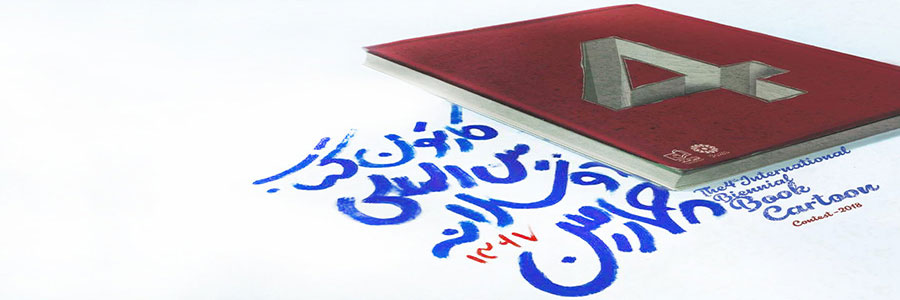 4
چهارمین
دوسالانه
بین المللی
کارتون کتاب
۱۳۹۷
The 4th International
Biennial
Book
Cartoon
Contest - 2018